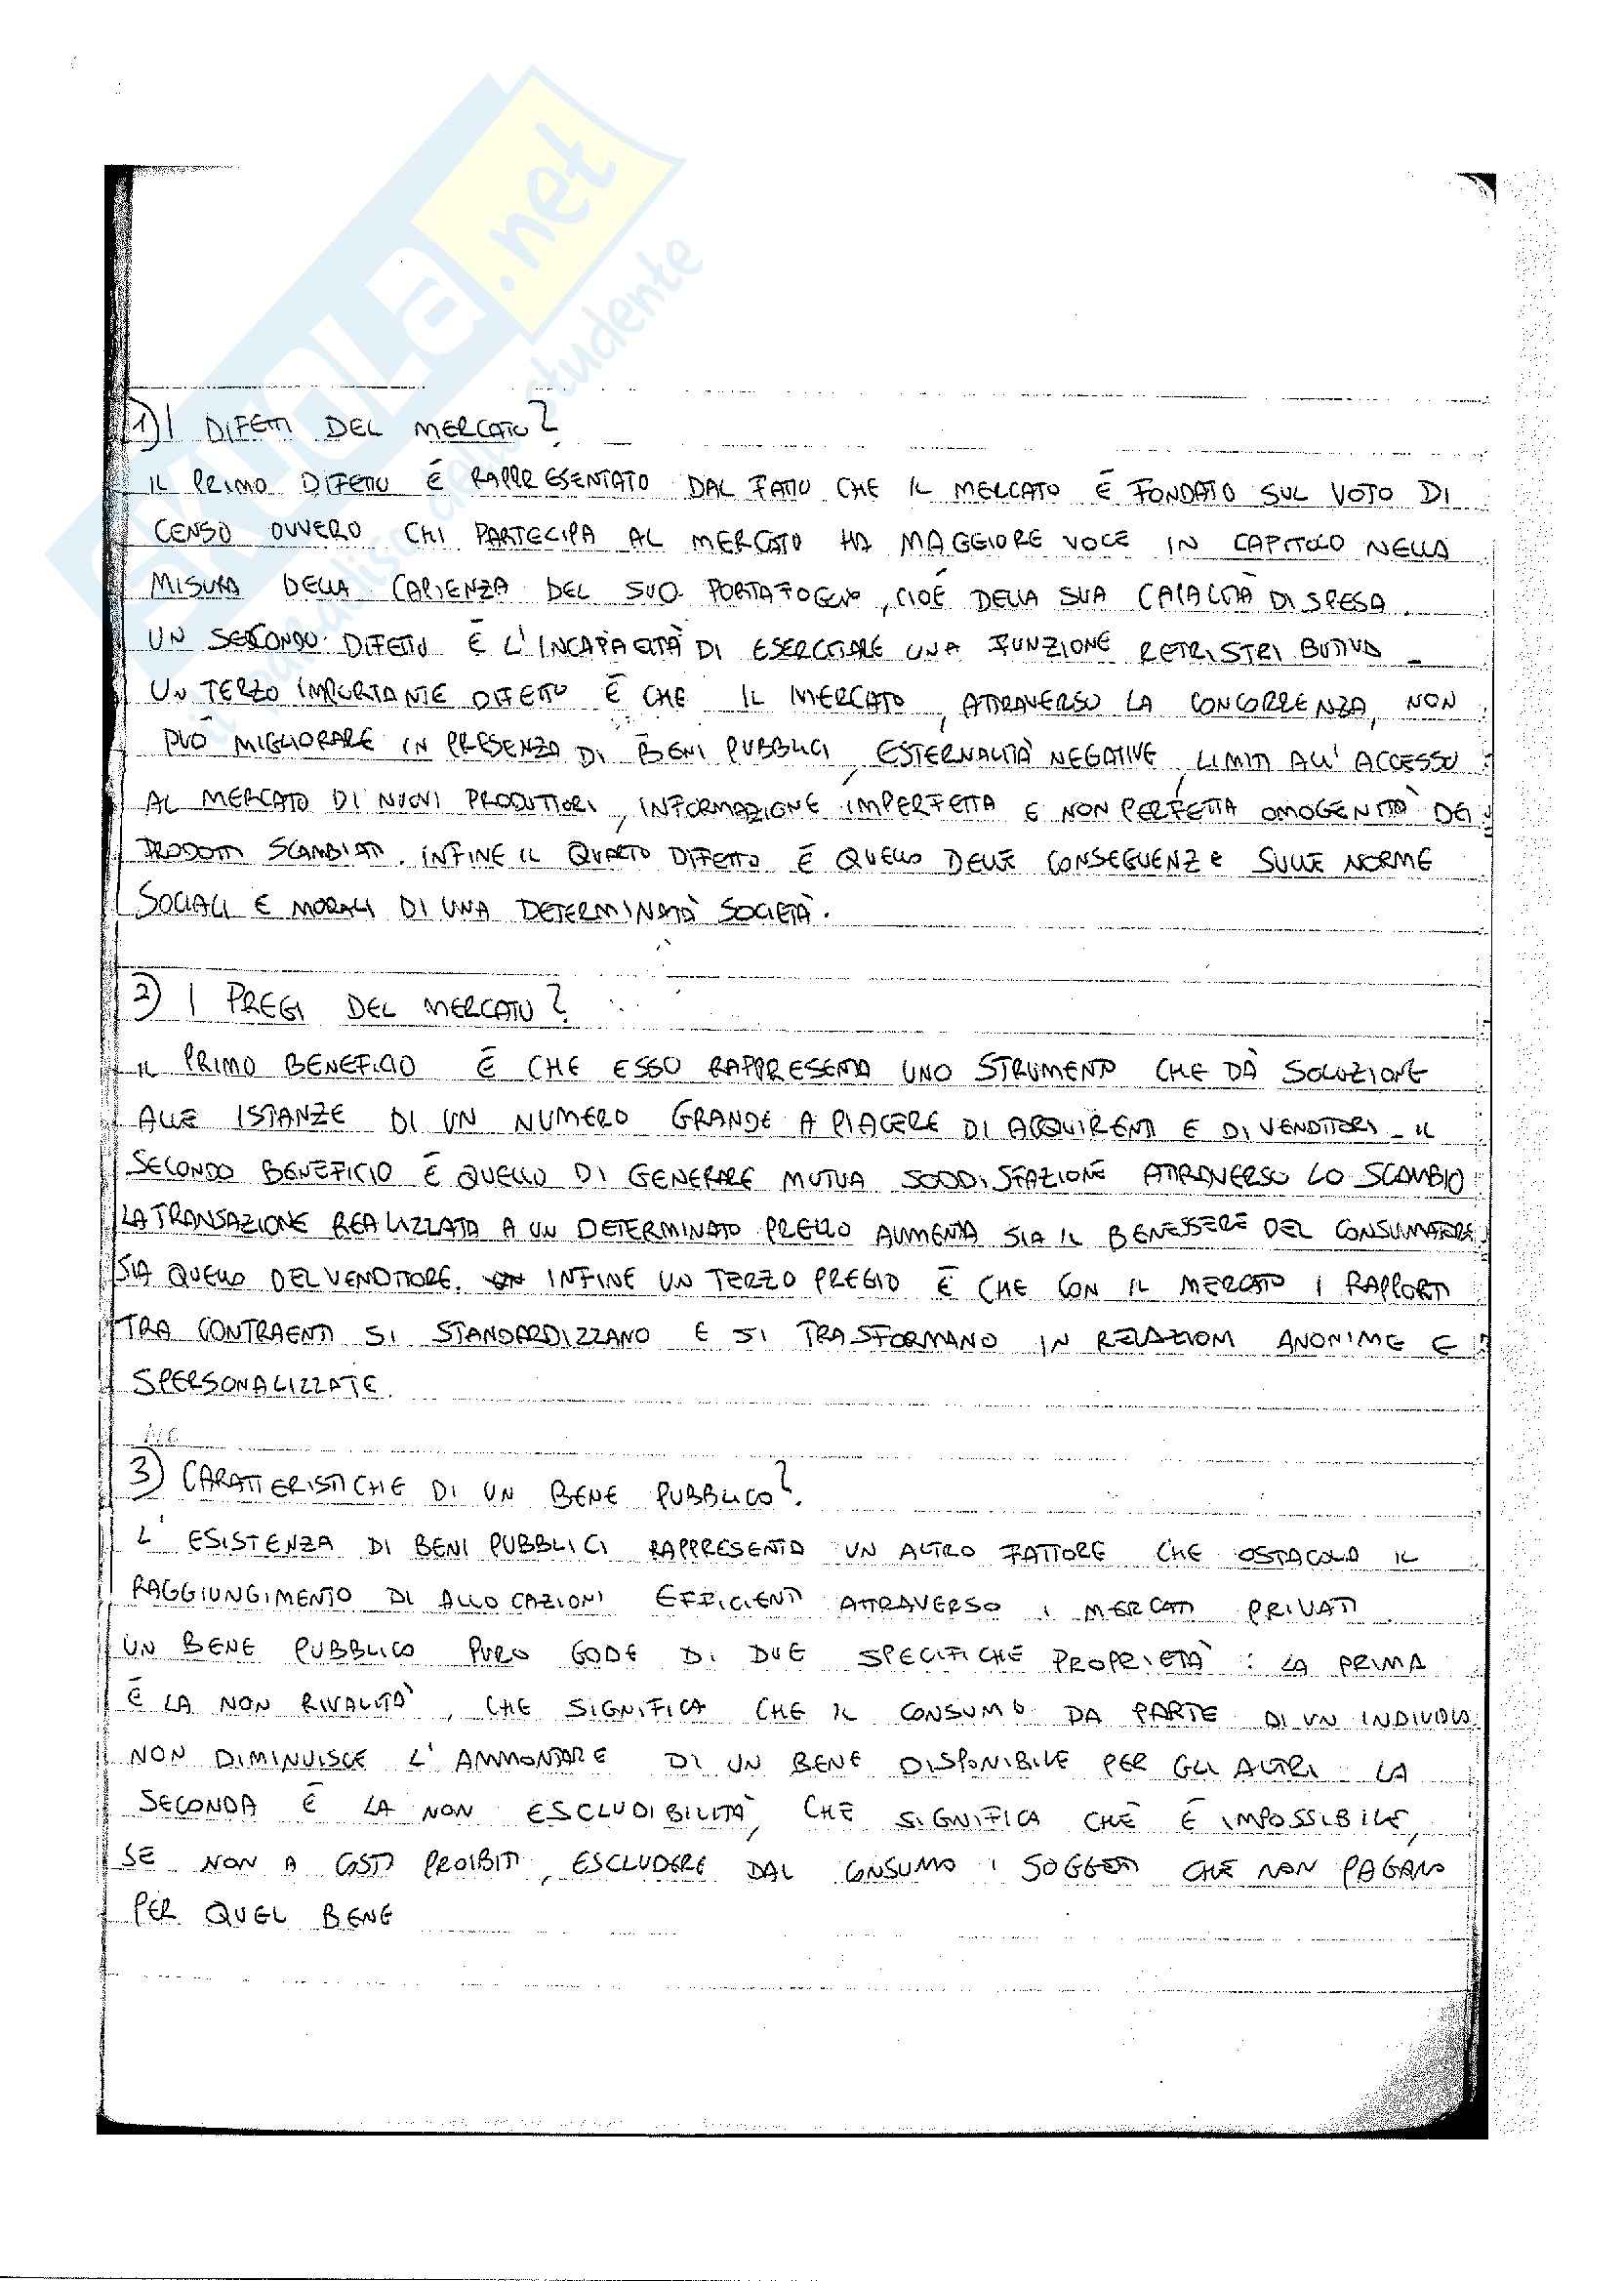 SKUOLA.net
il paradiso dello studente
1) I DIFETTI DEL MERCATO?
IL PRIMO DIFETTO È RAPPRESENTATO DAL FATTO CHE IL MERCATO È FONDATO SUL VOTO DI
CENSO OVVERO CHI PARTECIPA AL MERCATO HA MAGGIORE VOCE IN CAPITOLO NELLA
MISURA DELLA CAPIENZA DEL SUO PORTAFOGLIO, CIOÈ DELLA SUA CAPACITÀ DI SPESA.
UN SECONDO DIFETTO È L'INCAPACITÀ DI ESERCITARE UNA FUNZIONE RETRISTRIBUTIVA
UN TERZO IMPORTANTE DIFETTO È CHE IL MERCATO, ATTRAVERSO LA CONCORRENZA, NON
PUÒ MIGLIORARE IN PRESENZA DI BENI PUBBLICI, ESTERNALITÀ NEGATIVE, LIMITI ALL'ACCESSO
AL MERCATO DI NUOVI PRODUTTORI, INFORMAZIONE IMPERFETTA E NON PERFETTA OMOGENITÀ DEI
PRODOTTI SCAMBIATI. INFINE IL QUARTO DIFETTO È QUELLO DELLE CONSEGUENZE SULLE NORME
SOCIALI E MORALI DI UNA DETERMINATÀ SOCIETÀ.
2) I PREGI DEL MERCATO?
IL PRIMO BENEFICIO È CHE ESSO RAPPRESENTA UNO STRUMENTO CHE DÀ SOLUZIONE
ALLE ISTANZE DI UN NUMERO GRANDE A PIACERE DI ACQUIRENTI E DI VENDITORI. IL
SECONDO BENEFICIO È QUELLO DI GENERARE MUTUA SODDISFAZIONE ATTRAVERSO LO SCAMBIO
LA TRANSAZIONE REALIZZATA A UN DETERMINATO PREZZO AUMENTA SIA IL BENESSERE DEL CONSUMATORE
SIA QUELLO DEL VENDITORE. INFINE UN TERZO PREGIO È CHE CON IL MERCATO I RAPPORTI
TRA CONTRAENTI SI STANDARDIZZANO E SI TRASFORMANO IN RELAZIONI ANONIME E
SPERSONALIZZATE.
3) CARATTERISTICHE DI UN BENE PUBBLICO?
L'ESISTENZA DI BENI PUBBLICI RAPPRESENTA UN ALTRO FATTORE CHE OSTACOLA IL
RAGGIUNGIMENTO DI ALLOCAZIONI EFFICIENTI ATTRAVERSO I MERCATI PRIVATI.
UN BENE PUBBLICO PURO GODE DI DUE SPECIFICHE PROPRIETÀ: LA PRIMA
È LA NON RIVALITÀ, CHE SIGNIFICA CHE IL CONSUMO DA PARTE DI UN INDIVIDUO
NON DIMINUISCE L'AMMONTARE DI UN BENE DISPONIBILE PER GLI ALTRI. LA
SECONDA È LA NON ESCLUDIBILITÀ, CHE SIGNIFICA CHE È IMPOSSIBILE,
SE NON A COSTI PROIBITI, ESCLUDERE DAL CONSUMO I SOGGETTI CHE NON PAGANO
PER QUEL BENE